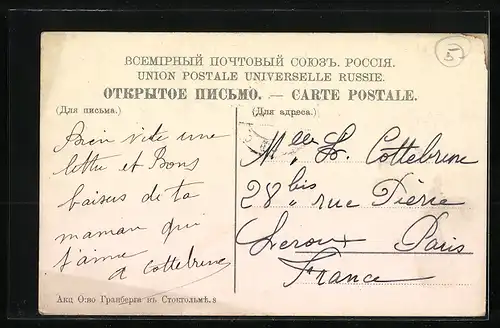 5
ВСЕМІРНЫЙ ПОЧТОВЫЙ СОЮЗЪ. РОССІЯ.
UNION POSTALE UNIVERSELLE RUSSIE.
ОТКРЫТОЕ ПИСЬМО. — CARTE POSTALE.
(Для письма.)
(Для адреса.)
Bien vite une
lettre et Bons
baisers de ta
maman qui
t'aime
A Cottebrune
Mlle L. Cottebrune
28 bis rue Pierre
Leroux Paris
France
Акц. О-во Гранбергъ въ Стокгольмѣ. s